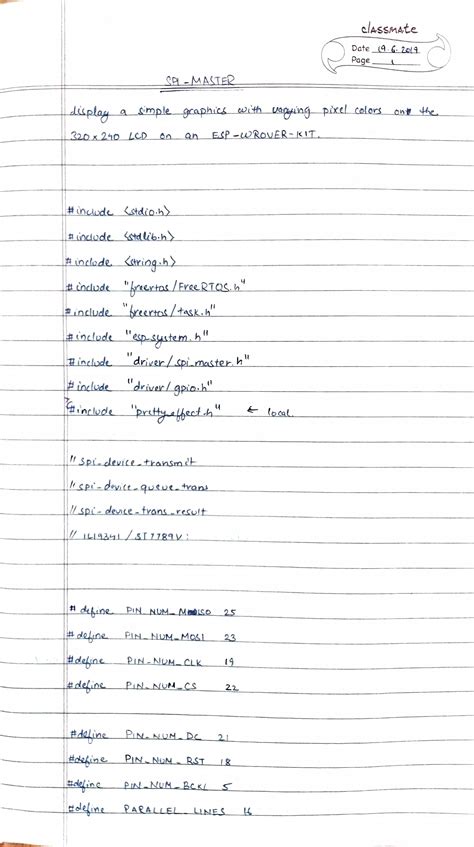 classmate
Date 19.6.2019
Page 1
SPI-MASTER
display a simple graphics with varying pixel colors on the
320x240 LCD on an ESP-WROVER-KIT.
#include <stdio.h>
#include <stdlib.h>
#include <string.h>
#include "freertos/FreeRTOS.h"
#include "freertos/task.h"
#include "esp_system.h"
#include "driver/spi_master.h"
#include "driver/gpio.h"
#include "pretty_effect.h" ← local
// spi_device_transmit
// spi_device_queue_trans
// spi_device_trans_result
// ILI9341 / ST7789V:
#define PIN_NUM_MISO 25
#define PIN_NUM_MOSI 23
#define PIN_NUM_CLK 19
#define PIN_NUM_CS 22
#define PIN_NUM_DC 21
#define PIN_NUM_RST 18
#define PIN_NUM_BCKL 5
#define PARALLEL_LINES 16